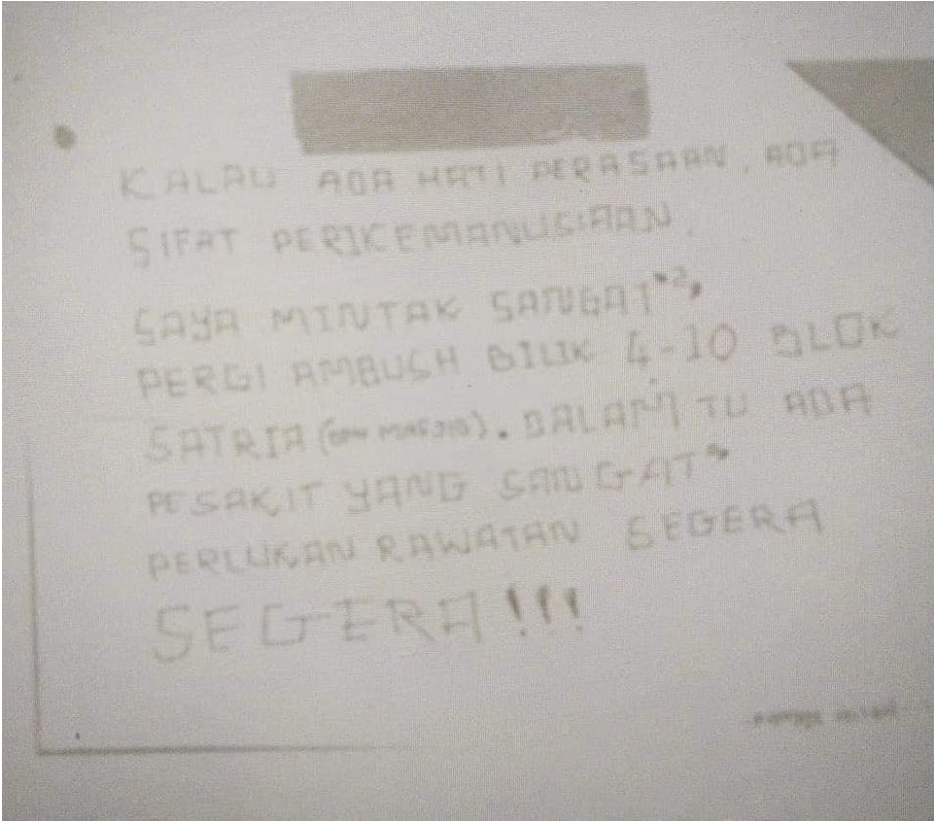 KALAU ADA HATI PERASAAN, ADA
SIFAT PERIKEMANUSIAAN.
SAYA MINTAK SANGAT"2,
PERGI AMBUSH BILIK 4-10 BLOK
SATRIA ( ). DALAM TU ADA
PESAKIT YANG SANGAT"
PERLUKAN RAWATAN SEGERA
SEGERA!!!